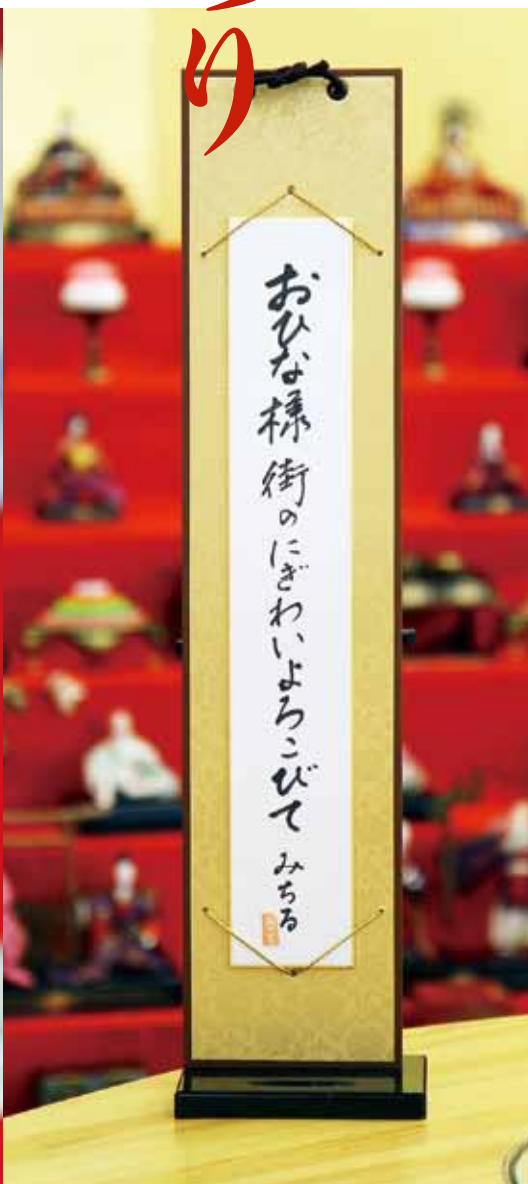 り
おひな様 街のにぎわいよろこびて みちる